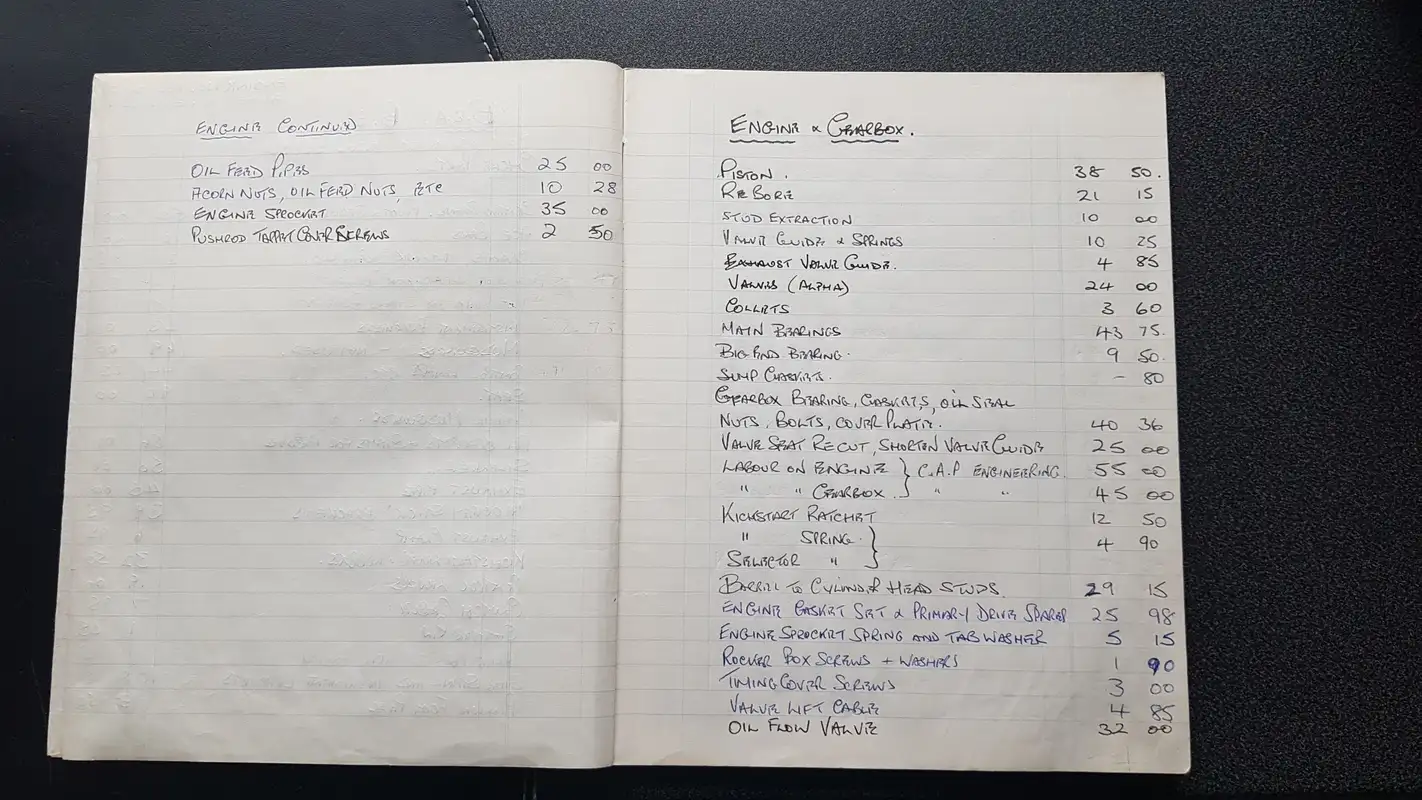 ENGINE CONTINUED
OIL FEED PIPES 25 00
ACORN NUTS, OIL FEED NUTS, ETC 10 28
ENGINE SPROCKET 35 00
PUSHROD TAPPET COVER SCREWS 2 50
ENGINE & GEARBOX.
PISTON. 38 50.
REBORE 21 15
STUD EXTRACTION 10 00
VALVE GUIDE & SPRINGS 10 25
EXHAUST VALVE GUIDE. 4 85
VALVES (ALPHA) 24 00
COLLETS 3 60
MAIN BEARINGS 43 75.
BIG END BEARING. 9 50.
SUMP GASKETS. - 80
GEARBOX BEARING, GASKETS, OIL SEAL
NUTS, BOLTS, COVER PLATE. 40 36
VALVE SEAT RECUT, SHORTEN VALVE GUIDE 25 00
LABOUR ON ENGINE } C.A.P ENGINEERING. 55 00
" " GEARBOX. } " " 45 00
KICKSTART RATCHET 12 50
" SPRING. } 4 90
SELECTOR "
BARREL TO CYLINDER HEAD STUDS. 29 15
ENGINE GASKET SET & PRIMARY DRIVE SPARES 25 98
ENGINE SPROCKET SPRING AND TAB WASHER 5 15
ROCKER BOX SCREWS + WASHERS 1 90
TIMING COVER SCREWS 3 00
VALVE LIFT CABLE 4 85
OIL FLOW VALVE 32 00